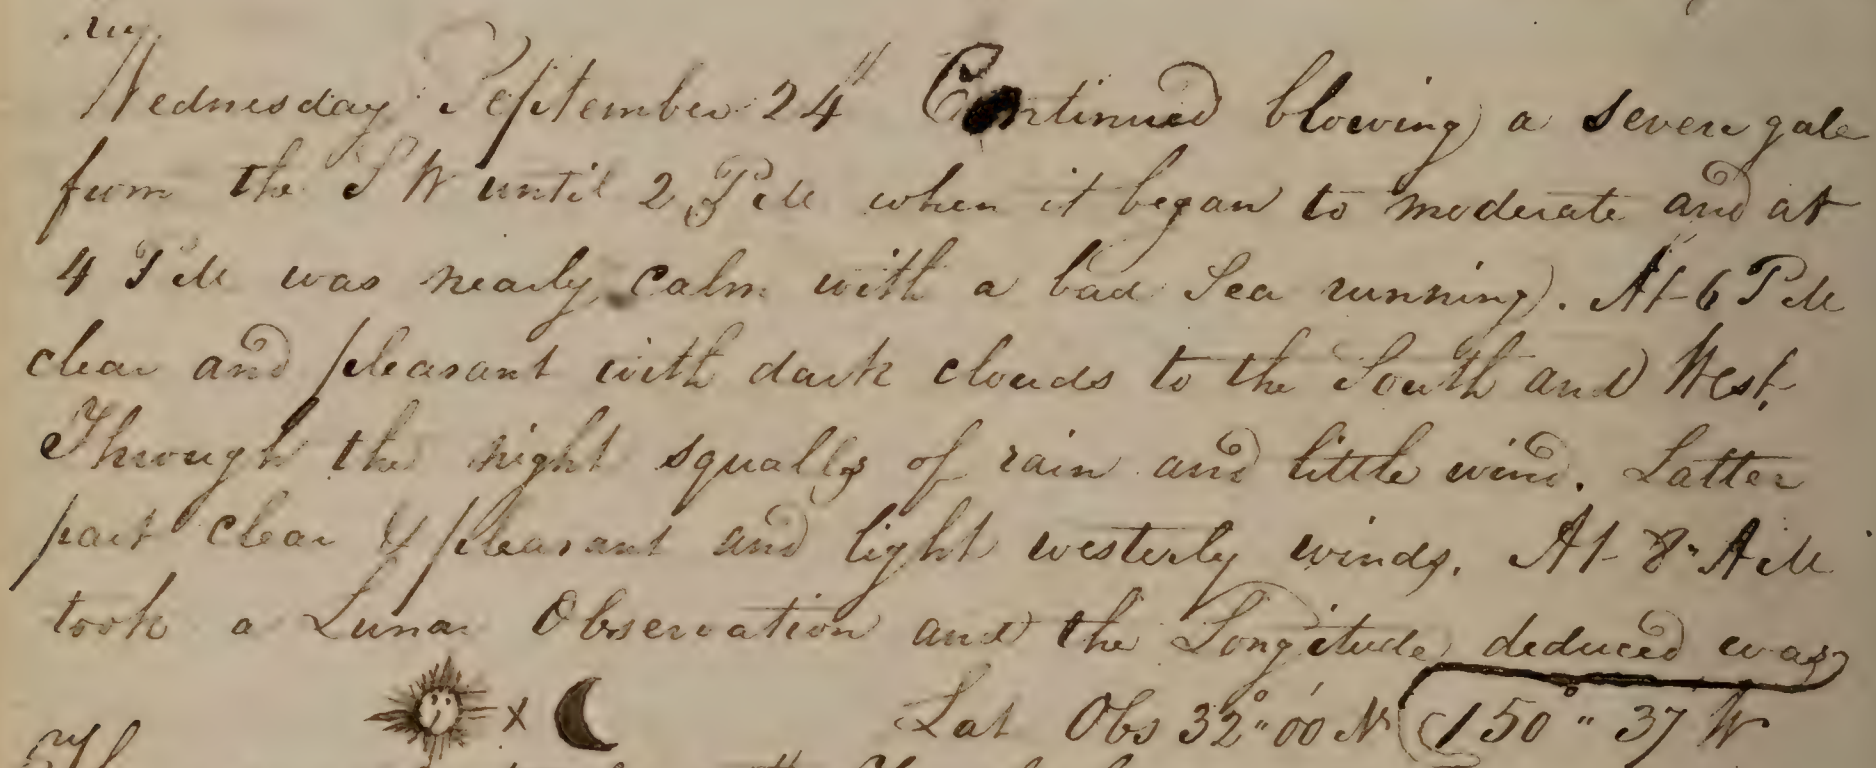 Wednesday September 24th Continued blowing a severe gale
from the S W until 2 P M when it began to moderate and at
4 P M was nearly calm with a bad Sea running. At 6 P M
clear and pleasant with dark clouds to the South and West.
Through the night squalls of rain and little wind. Latter
part clear & pleasant and light westerly winds. At 8" A M
took a Lunar Observation and the Longitude deduced was
x Lat Obs 32°"00' N (150°" 37 W